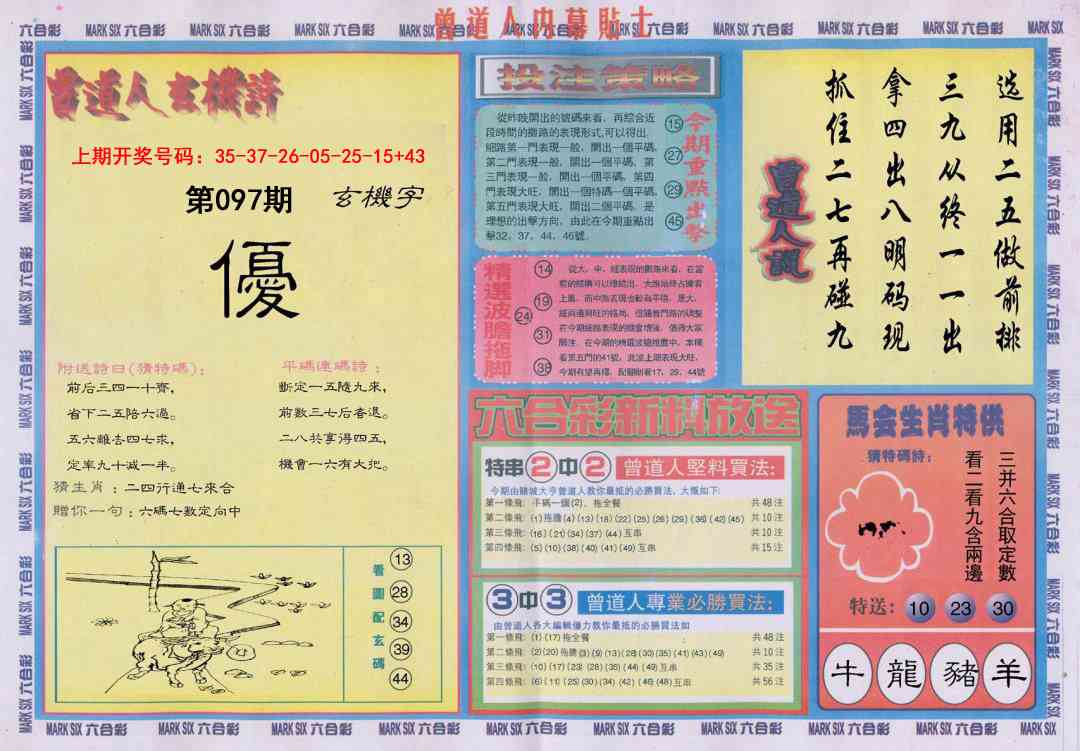 曾道人内幕貼士
MARK SIX 六合彩
曾道人玄機詩
上期开奖号码：35-37-26-05-25-15+43
第097期
玄機字
優
附送詩曰(猜特碼)：
前后三四一十齊,
省下二五陪六過。
五六離去四七求,
定率九十减一半。
平碼連碼詩：
斷定一五隨九來,
前數三七后春退。
二八共享得四五,
機會一六有大把。
猜生肖：二四行通七來合
贈你一句：六碼七數定向中
看圖配玄碼
13
28
34
39
44
投注策略
從昨晚開出的號碼來看，再綜合近
段時間的攤路的表現形式,可以得出,
細路第一門表現一般，開出一個平碼,
第二門表現一般，開出一個平碼，第
三門表現一般，開出一個平碼，第四
門表現大旺，開出一個特碼一個平碼,
第五門表現大旺，開出二個平碼，是
理想的出擊方向，由此在今期重點出
擊32、37、44、46號。
15
27
29
45
今期重點出擊
精選波膽拖脚
14
19
24
31
38
六合彩新料放送
特串2中2 曾道人堅料買法：
今期由賭城大亨曾道人教你最抵的必勝買法，大慨如下：
第一條飛：平碼一個(2)，拖全餐 共48注
第二條飛：(1)拖膽(4)(13)(18)(22)(25)(26)(29)(36)(42)(45) 共10注
第三條飛：(16)(21)(34)(37)(44)互串 共10注
第四條飛：(5)(10)(38)(40)(41)(49)互串 共15注
3中3 曾道人專業必勝買法：
由曾道人各大編輯優力教你最抵的必勝買法如
第一條飛：(1)(17)拖全餐 共48注
第二條飛：(2)(20)拖膽(3)(9)(13)(28)(30)(35)(41)(43)(49) 共10注
第三條飛：(10)(17)(23)(28)(36)(44)(49)互串 共35注
第四條飛：(6)(11)(25)(30)(34)(42)(46)(48)互串 共56注
选用二五做前排
三九从终一一出
拿四出八明码现
抓住二七再碰九
曾道人說
馬会生肖特供
猜特碼詩：
三并六合取定數
看二看九含兩邊
特送：10 23 30
牛 龍 豬 羊